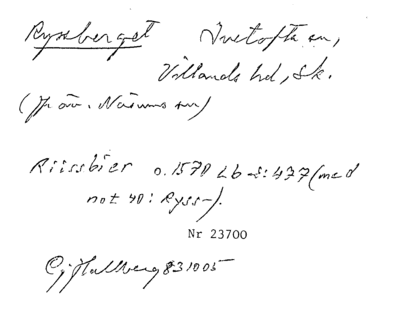 Ryssberget Ivetofta sn,
Villands hd, Sk.
(jfr äv. Näsums sn)
Riissbier o. 1570 Lb s: 477 (med
not 40: Ryss-).
Nr 23700
Gj Hallberg 831005